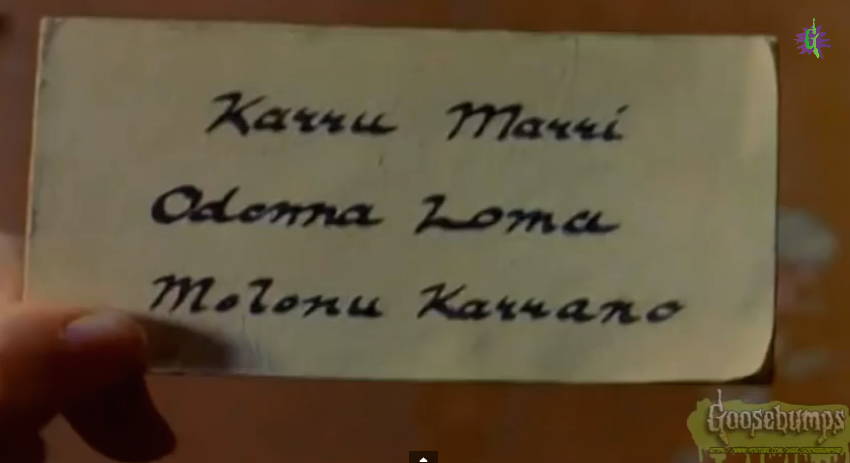 G
Karru Marri
Odonna Loma
Molonu Karrano
Goosebumps